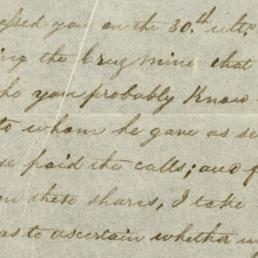 essed you on the 30.th ult.
ing the Cruz mine that
ho you probably Know
to whom he gave as se
se paid the calls; and f
on these shares, I take
as to ascertain whether my